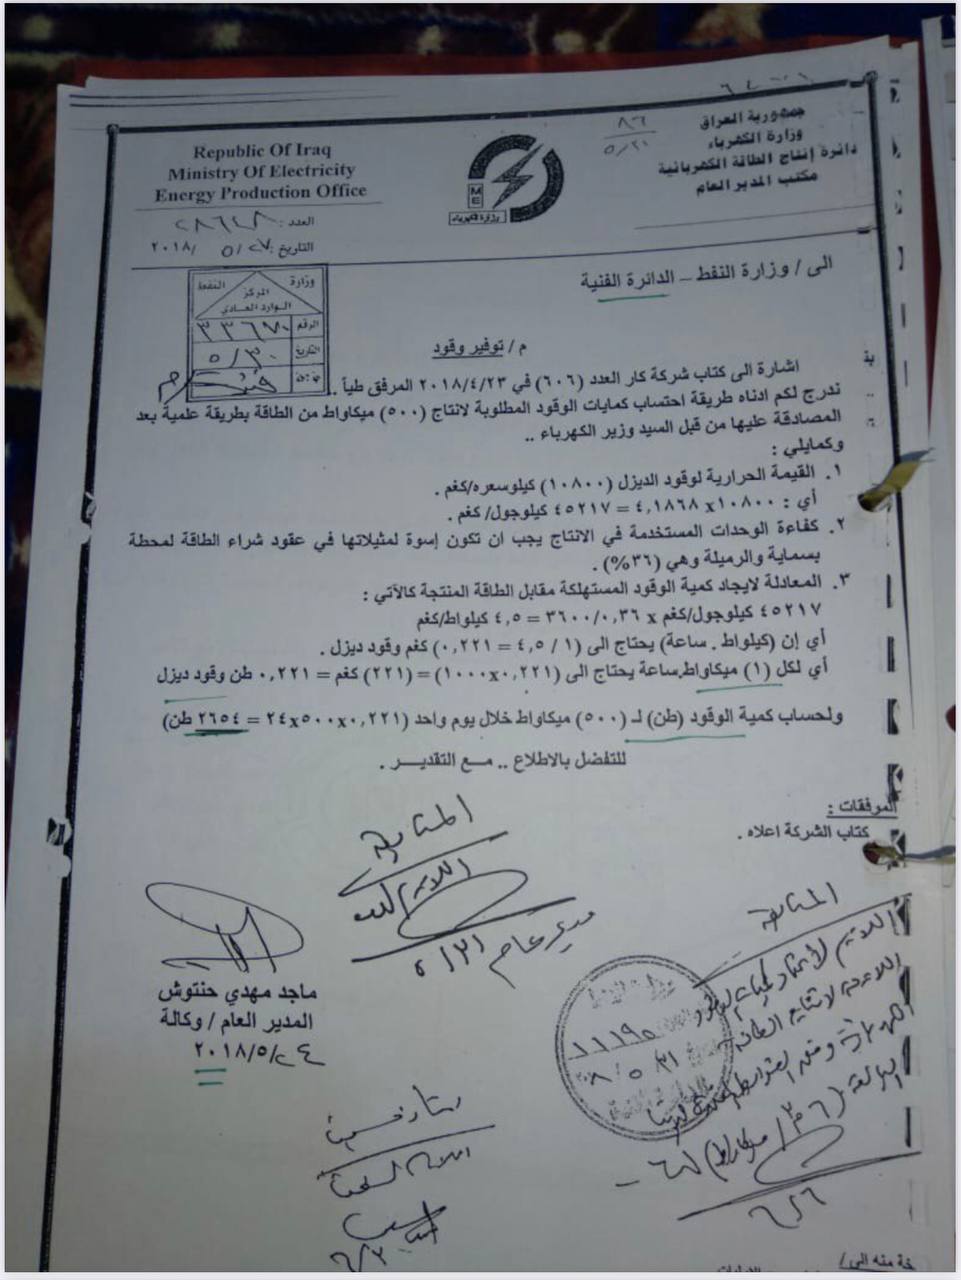 جمهورية العراق
وزارة الكهرباء
دائرة إنتاج الطاقة الكهربائية
مكتب المدير العام
Republic Of Iraq
Ministry Of Electricity
Energy Production Office
ME
وزارة الكهرباء
٨٦
٥/٣١
العدد:
التاريخ: ٥/٢٧ /٢٠١٨
الى / وزارة النفط – الدائرة الفنية
وزارة النفط
المركز
الوارد العادي
الرقم ٣٣٦٧٠
التاريخ ٥/٣٠
م / توفير وقود
اشارة الى كتاب شركة كار العدد (٦٠٦) في ٢٠١٨/٤/٢٣ المرفق طياً ..
ندرج لكم ادناه طريقة احتساب كمايات الوقود المطلوبة لانتاج (٥٠٠) ميكاواط من الطاقة بطريقة علمية بعد
المصادقة عليها من قبل السيد وزير الكهرباء ..
وكمايلي :
١. القيمة الحرارية لوقود الديزل (١٠٨٠٠) كيلوسعره/كغم .
أي : ١٠٨٠٠x ٤,١٨٦٨ = ٤٥٢١٧ كيلوجول/ كغم .
٢. كفاءة الوحدات المستخدمة في الانتاج يجب ان تكون إسوة لمثيلاتها في عقود شراء الطاقة لمحطة
بسماية والرميلة وهي (٣٦%) .
٣. المعادلة لايجاد كمية الوقود المستهلكة مقابل الطاقة المنتجة كالآتي :
٤٥٢١٧ كيلوجول/كغم x ٣٦٠٠/٠,٣٦ = ٤,٥ كيلواط/كغم
أي إن (كيلواط . ساعة) يحتاج الى (١ / ٤,٥ = ٠,٢٢١) كغم وقود ديزل .
أي لكل (١) ميكاواط.ساعة يحتاج الى (٠,٢٢١x١٠٠٠)=(٢٢١) كغم = ٠,٢٢١ طن وقود ديزل
ولحساب كمية الوقود (طن) لـ (٥٠٠) ميكاواط خلال يوم واحد (٠,٢٢١x٥٠٠x٢٤ = ٢٦٥٤ طن)
للتفضل بالاطلاع .. مـع التقديـر .
المرفقات :
كتاب الشركة اعلاه .
المتابعة
مدير عام
٥/٣١
ماجد مهدي حنتوش
المدير العام / وكالة
٢٠١٨/٥/٢٤
المتابعة
١١١٩٥
٥/٣١
خة منه الى /